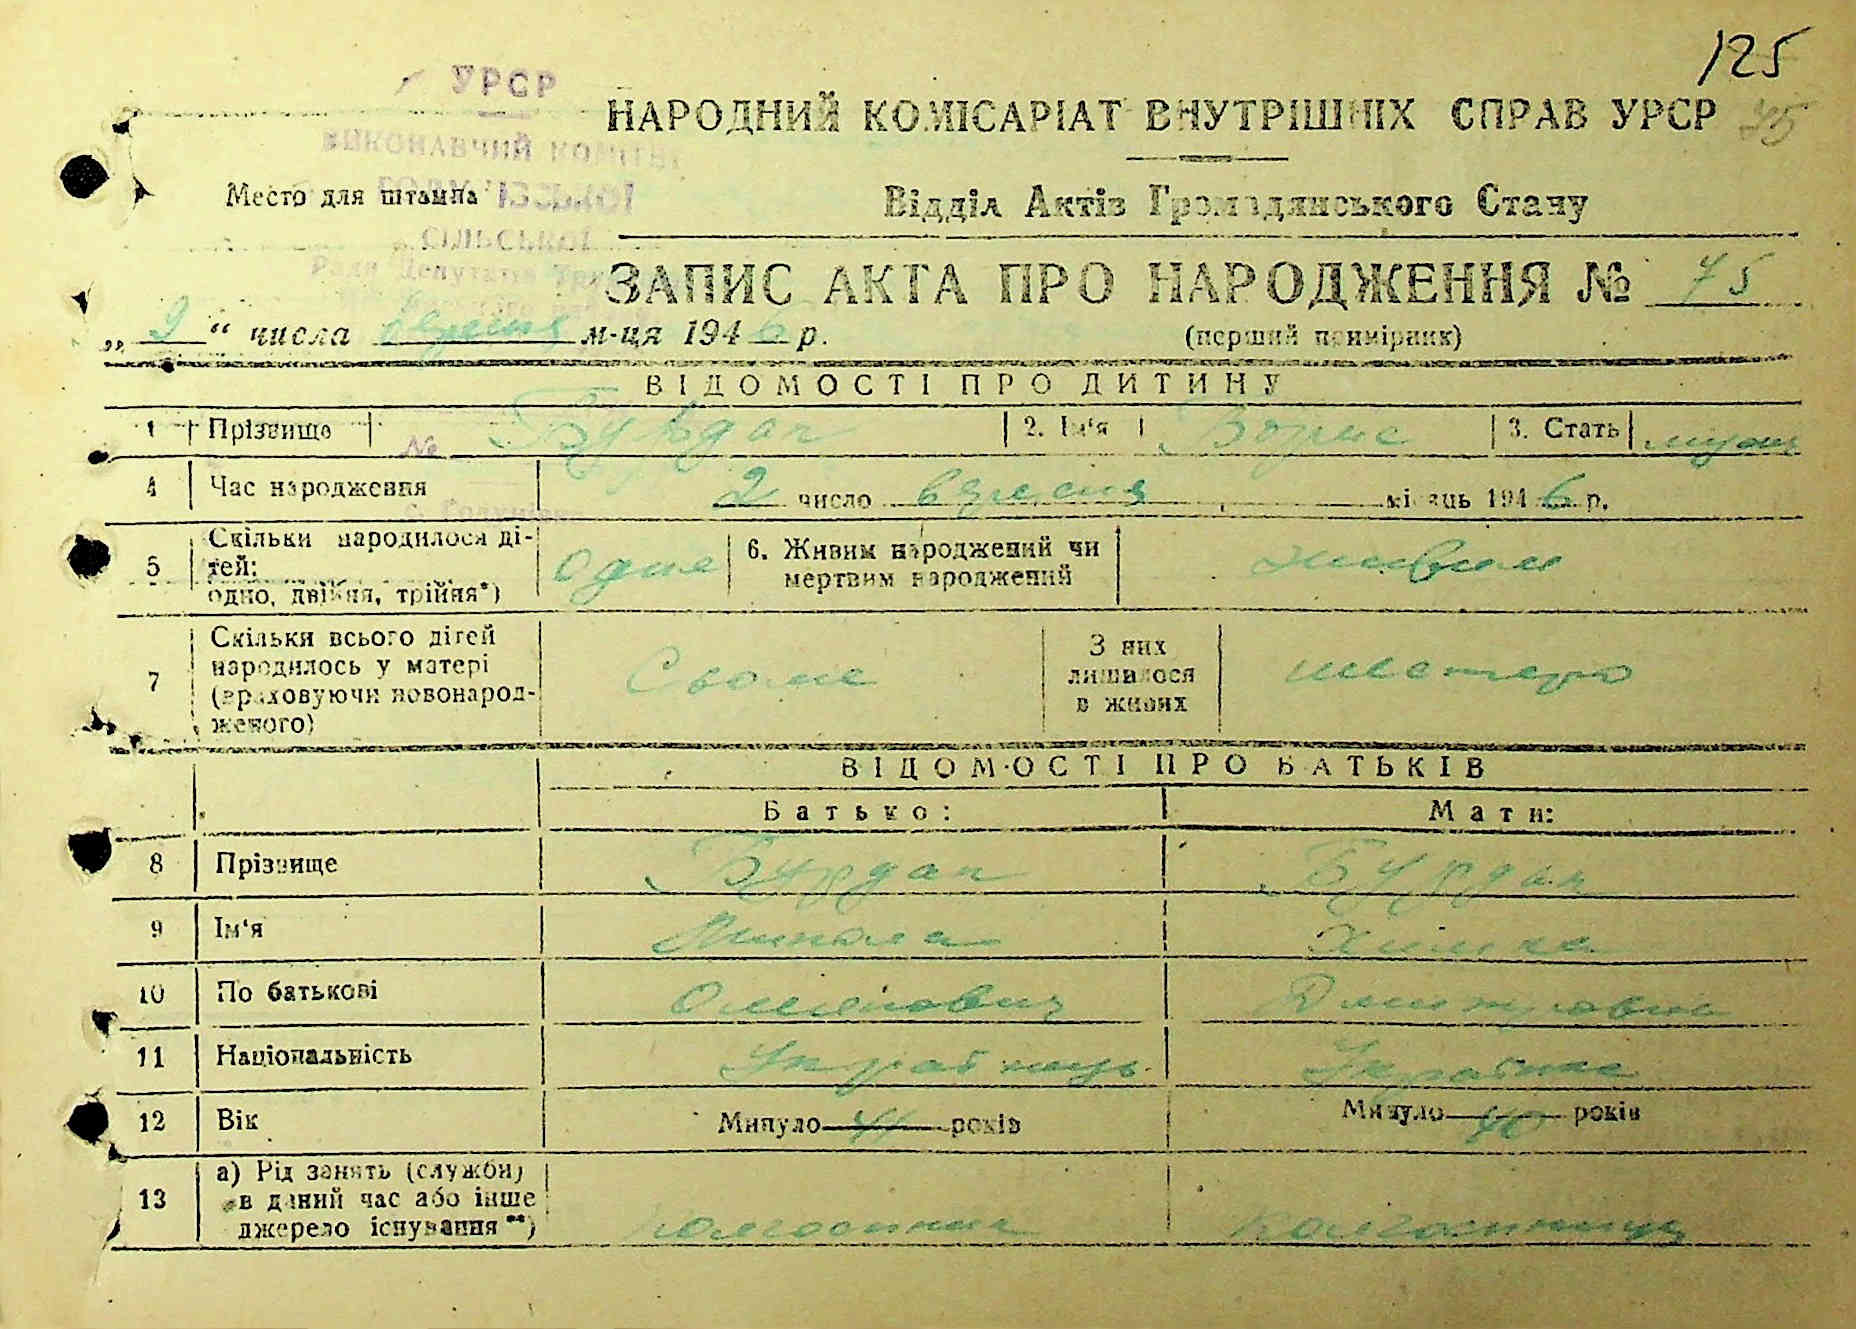 125
УРСР
НАРОДНИЙ КОМІСАРІАТ ВНУТРІШНІХ СПРАВ УРСР 75
ВИКОНАВЧИЙ КОМІТЕТ
Место для штампа
Відділ Актів Громадянського Стану
СІЛЬСЬКОЇ
Ради Депутатів
ЗАПИС АКТА ПРО НАРОДЖЕННЯ № 75
„ 9 “ числа вересня м-ця 1946 р.
(перший примірник)
ВІДОМОСТІ ПРО ДИТИНУ
1 Прізвище Бурдач 2. Ім‘я Борис 3. Стать
№
4 Час народження 2 число вересня місяць 1946 р.
5 Скільки народилося ді-
тей:
одно, двійня, трійня*) одне 6. Живим народжений чи
мертвим народжений живим
7 Скільки всього дітей
народилось у матері
(враховуючи новонарод-
женого) Сьоме З них
лишилося
в живих шестеро
ВІДОМОСТІ ПРО БАТЬКІВ
Батько: Мати:
8 Прізвище Бурдач Бурдач
9 Ім‘я Микола
10 По батькові Дмитрівна
11 Національність Українець Українка
12 Вік Минуло 41 років Минуло 40 років
13 а) Рід занять (служби)
в даний час або інше
джерело існування**) колгоспник колгоспниця